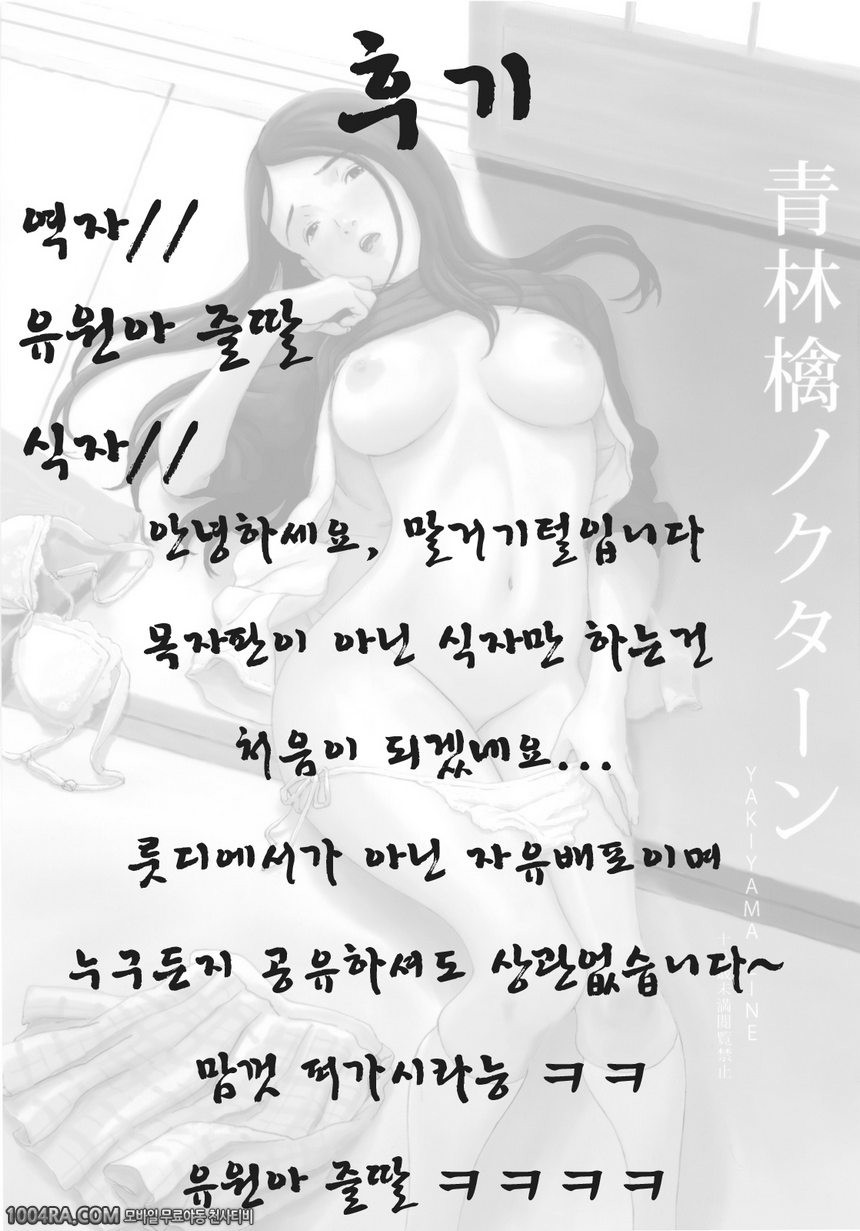 후기
역자//
유원아 줄딸
식자//
안녕하세요, 말거기털입니다
목자판이 아닌 식자만 하는건
처음이 되겠네요...
릇디에서가 아닌 자유배포이며
누구든지 공유하셔도 상관없습니다~
맘껏 퍼가시라능 ㅋㅋ
유원아 줄딸 ㅋㅋㅋㅋ
青林檎ノクターン
YAKIYAMA LINE
満閲覧禁止
1004RA.COM 모바일 무료야동 천사티비